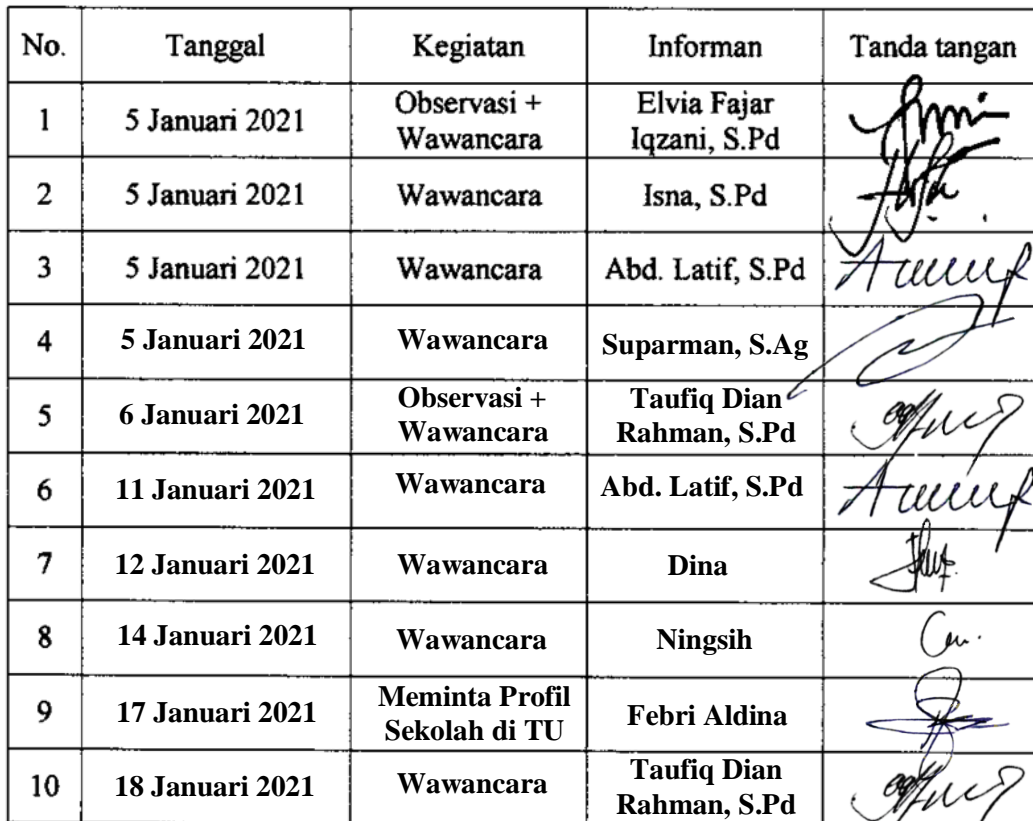 No. Tanggal Kegiatan Informan Tanda tangan
1 5 Januari 2021 Observasi + Wawancara Elvia Fajar Iqzani, S.Pd
2 5 Januari 2021 Wawancara Isna, S.Pd
3 5 Januari 2021 Wawancara Abd. Latif, S.Pd
4 5 Januari 2021 Wawancara Suparman, S.Ag
5 6 Januari 2021 Observasi + Wawancara Taufiq Dian Rahman, S.Pd
6 11 Januari 2021 Wawancara Abd. Latif, S.Pd
7 12 Januari 2021 Wawancara Dina
8 14 Januari 2021 Wawancara Ningsih
9 17 Januari 2021 Meminta Profil Sekolah di TU Febri Aldina
10 18 Januari 2021 Wawancara Taufiq Dian Rahman, S.Pd